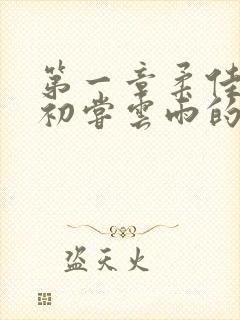 第一章柔佳
初尝云雨的
盗天火